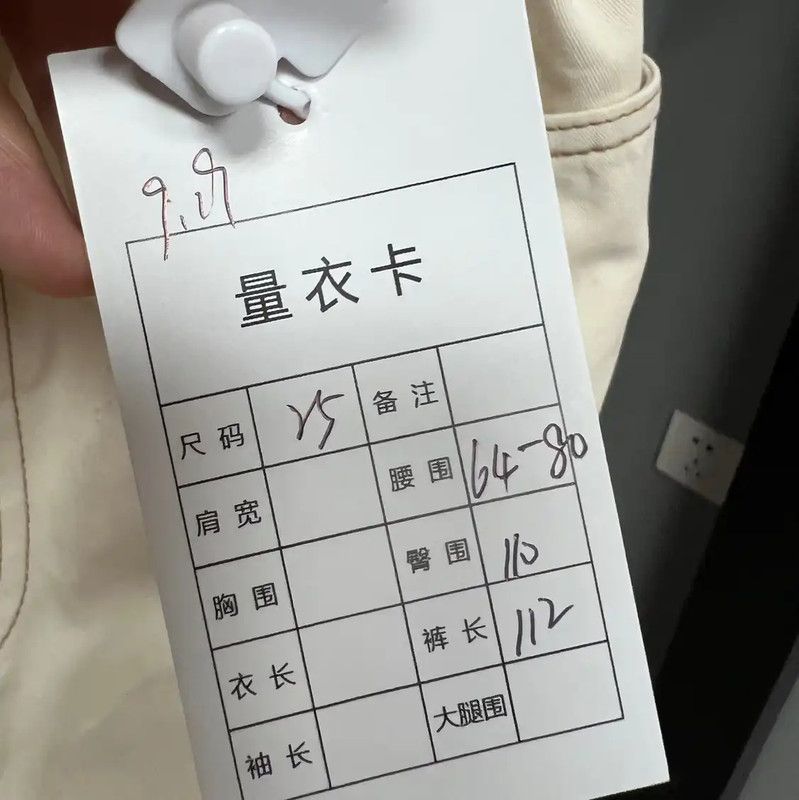 量衣卡
尺码 25 备注
肩宽 腰围 64-80
胸围 臀围 110
衣长 裤长 112
袖长 大腿围